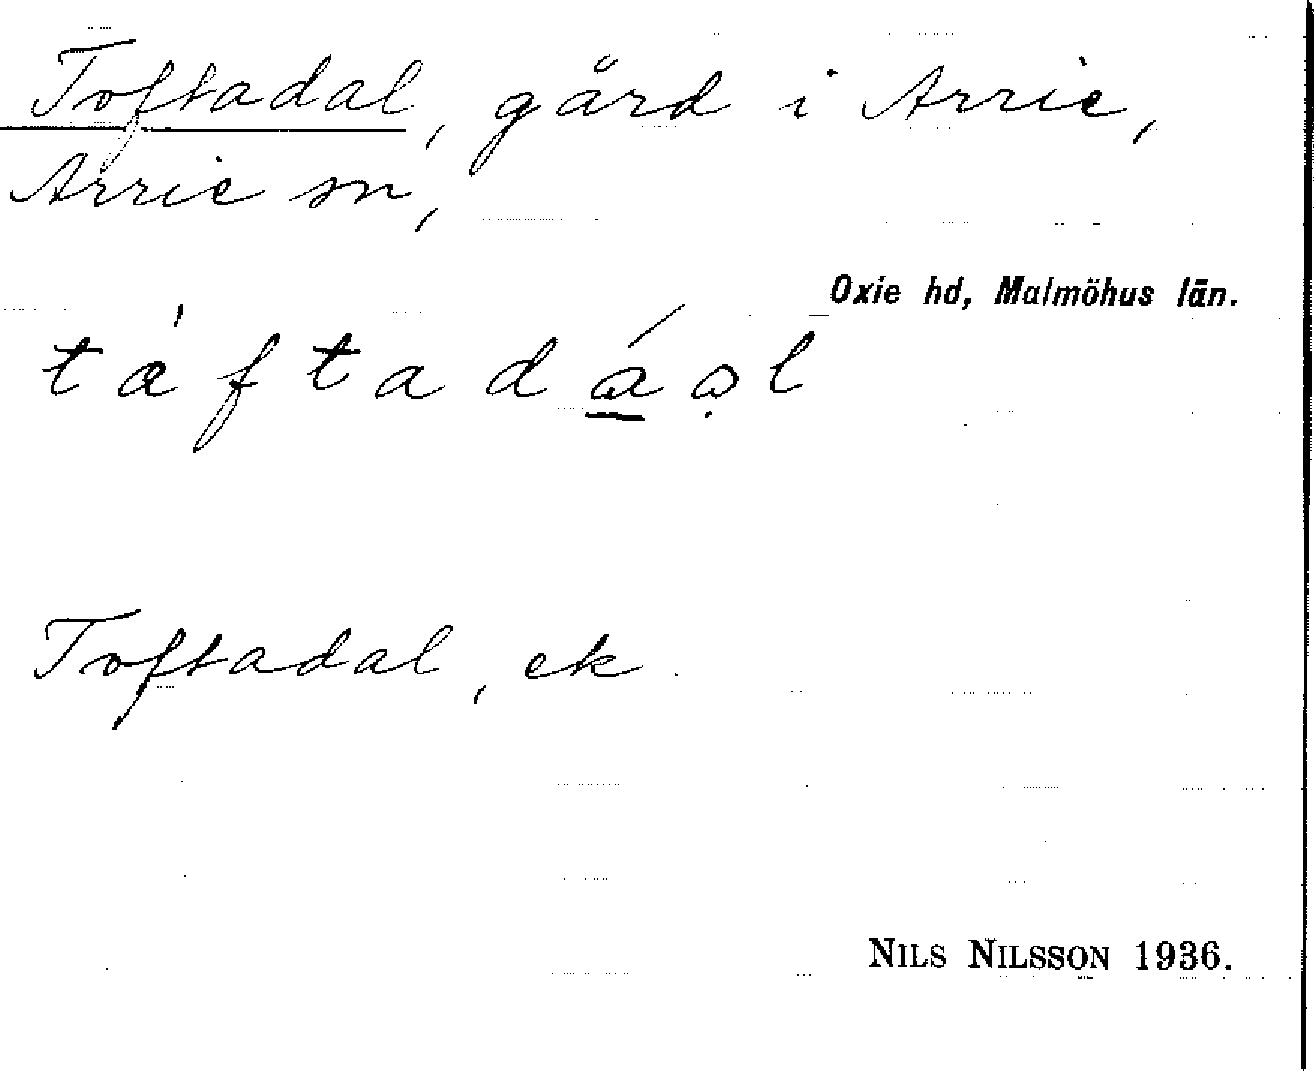 Toftadal, gård i Arrie,
Arrie sn,
Oxie hd, Malmöhus län.
Toftadal, ek.
NILS NILSSON 1936.